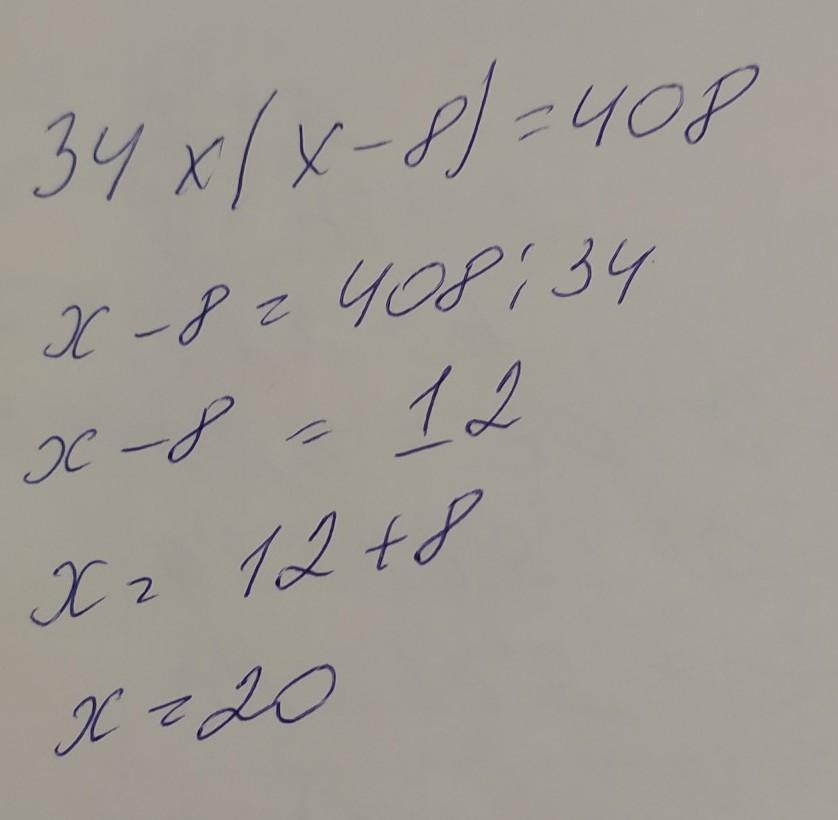 34 x (x-8) = 408
x-8 = 408 : 34
x-8 = 12
x = 12+8
x = 20